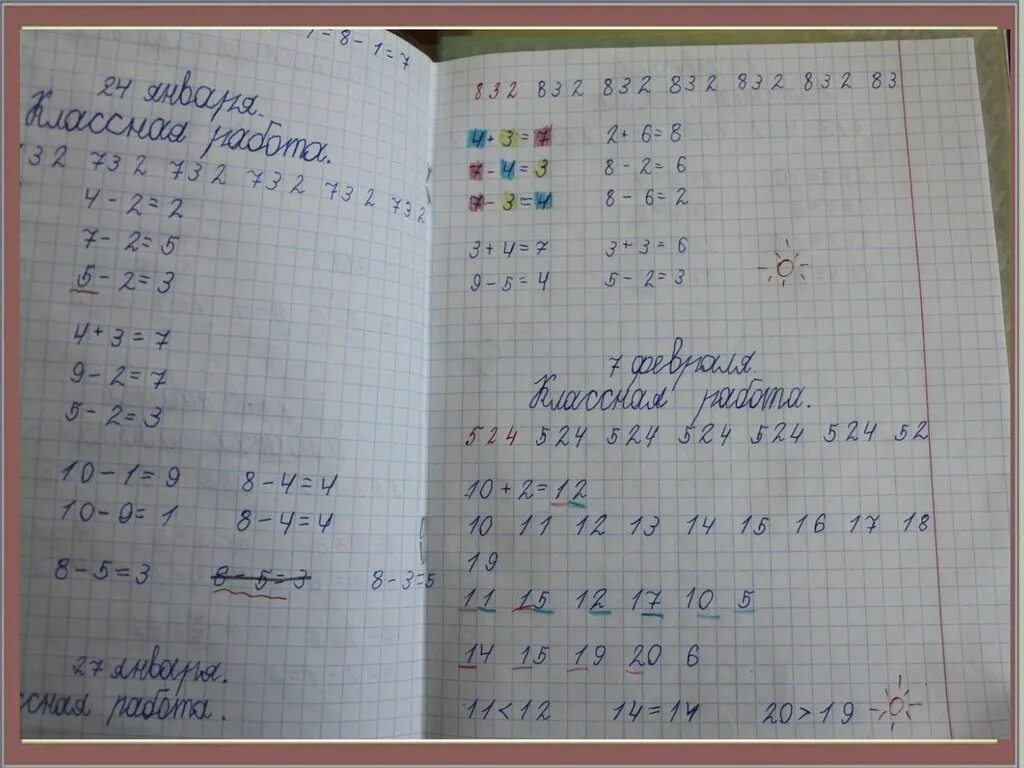 7 - 8 - 1 = 7
24 января.
Классная работа.
732 732 732 732 732 732
4 - 2 = 2
7 - 2 = 5
5 - 2 = 3
4 + 3 = 7
9 - 2 = 7
5 - 2 = 3
10 - 1 = 9 8 - 4 = 4
10 - 9 = 1 8 - 4 = 4
8 - 5 = 3 8 - 5 = 3 8 - 3 = 5
27 января.
ссная работа.
832 832 832 832 832 832 83
4 + 3 = 7 2 + 6 = 8
7 - 4 = 3 8 - 2 = 6
7 - 3 = 4 8 - 6 = 2
3 + 4 = 7 3 + 3 = 6
9 - 5 = 4 5 - 2 = 3
7 февраля.
Классная работа.
524 524 524 524 524 524 52
10 + 2 = 12
10 11 12 13 14 15 16 17 18
19
11 15 12 17 10 5
14 15 19 20 6
11 < 12 14 = 14 20 > 19